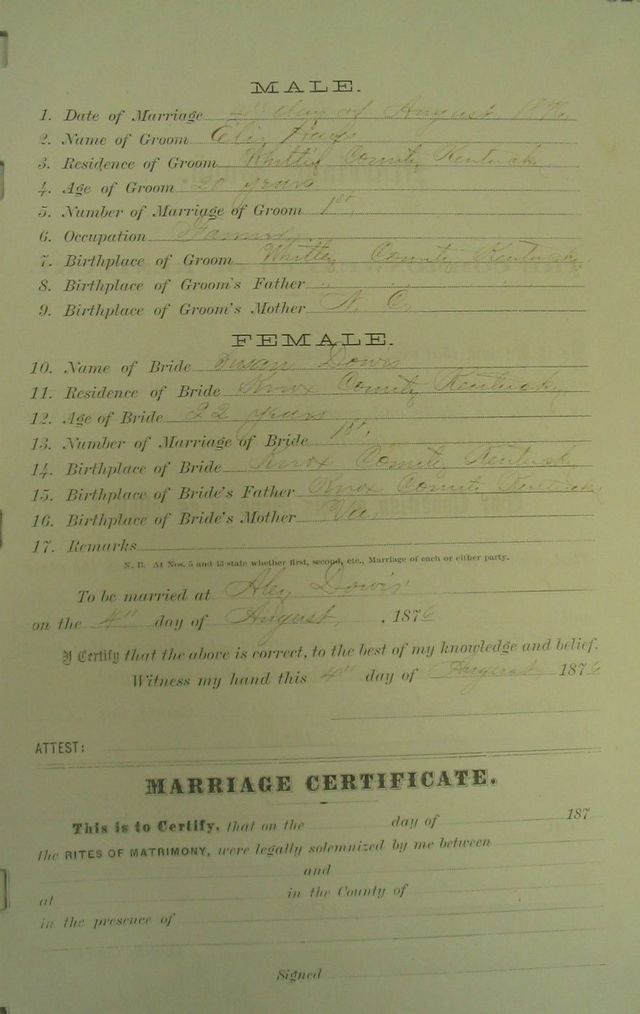 MALE.
1. Date of Marriage 4th day of August, 1876
2. Name of Groom Hays
3. Residence of Groom Whitley County Kentucky
4. Age of Groom 20 years
5. Number of Marriage of Groom 1st,
6. Occupation Farmer
7. Birthplace of Groom Whitley County Kentucky
8. Birthplace of Groom's Father " " "
9. Birthplace of Groom's Mother N. C.
FEMALE.
10. Name of Bride Susan Dowis
11. Residence of Bride Knox County Kentucky
12. Age of Bride 22 years
13. Number of Marriage of Bride 1st,
14. Birthplace of Bride Knox County Kentucky
15. Birthplace of Bride's Father Knox County Kentucky
16. Birthplace of Bride's Mother
17. Remarks
N. B. At Nos. 5 and 13 state whether first, second, etc., Marriage of each or either party.
To be married at Alex Dowis'
on the 4" day of August, , 1876
I Certify that the above is correct, to the best of my knowledge and belief.
Witness my hand this 4" day of August 1876
ATTEST:
MARRIAGE CERTIFICATE.
This is to Certify, that on the day of 187
the RITES OF MATRIMONY, were legally solemnized by me between
and
at in the County of
in the presence of
Signed